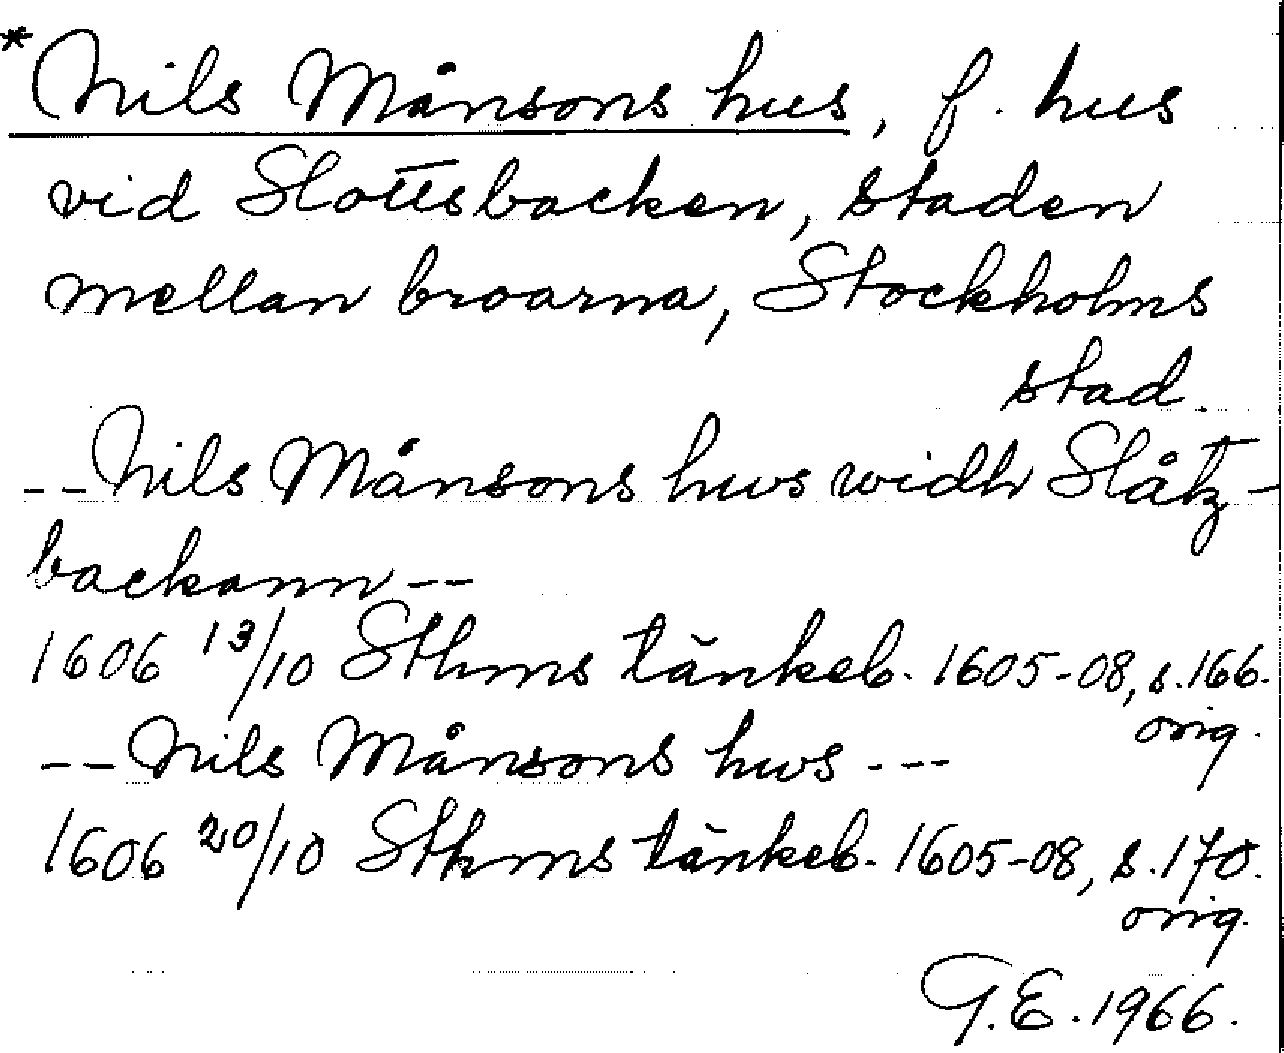 *Nils Månsons hus, f. hus
vid Slottsbacken, staden
mellan broarna, Stockholms
stad.
--Nils Månsons hws widh Slåtz-
backann--
1606 13/10 Sthms tänkeb. 1605-08, s. 166.
orig.
--Nils Månsons hws ---
1606 20/10 Sthms tänkeb. 1605-08, s. 170.
orig.
G.E. 1966.